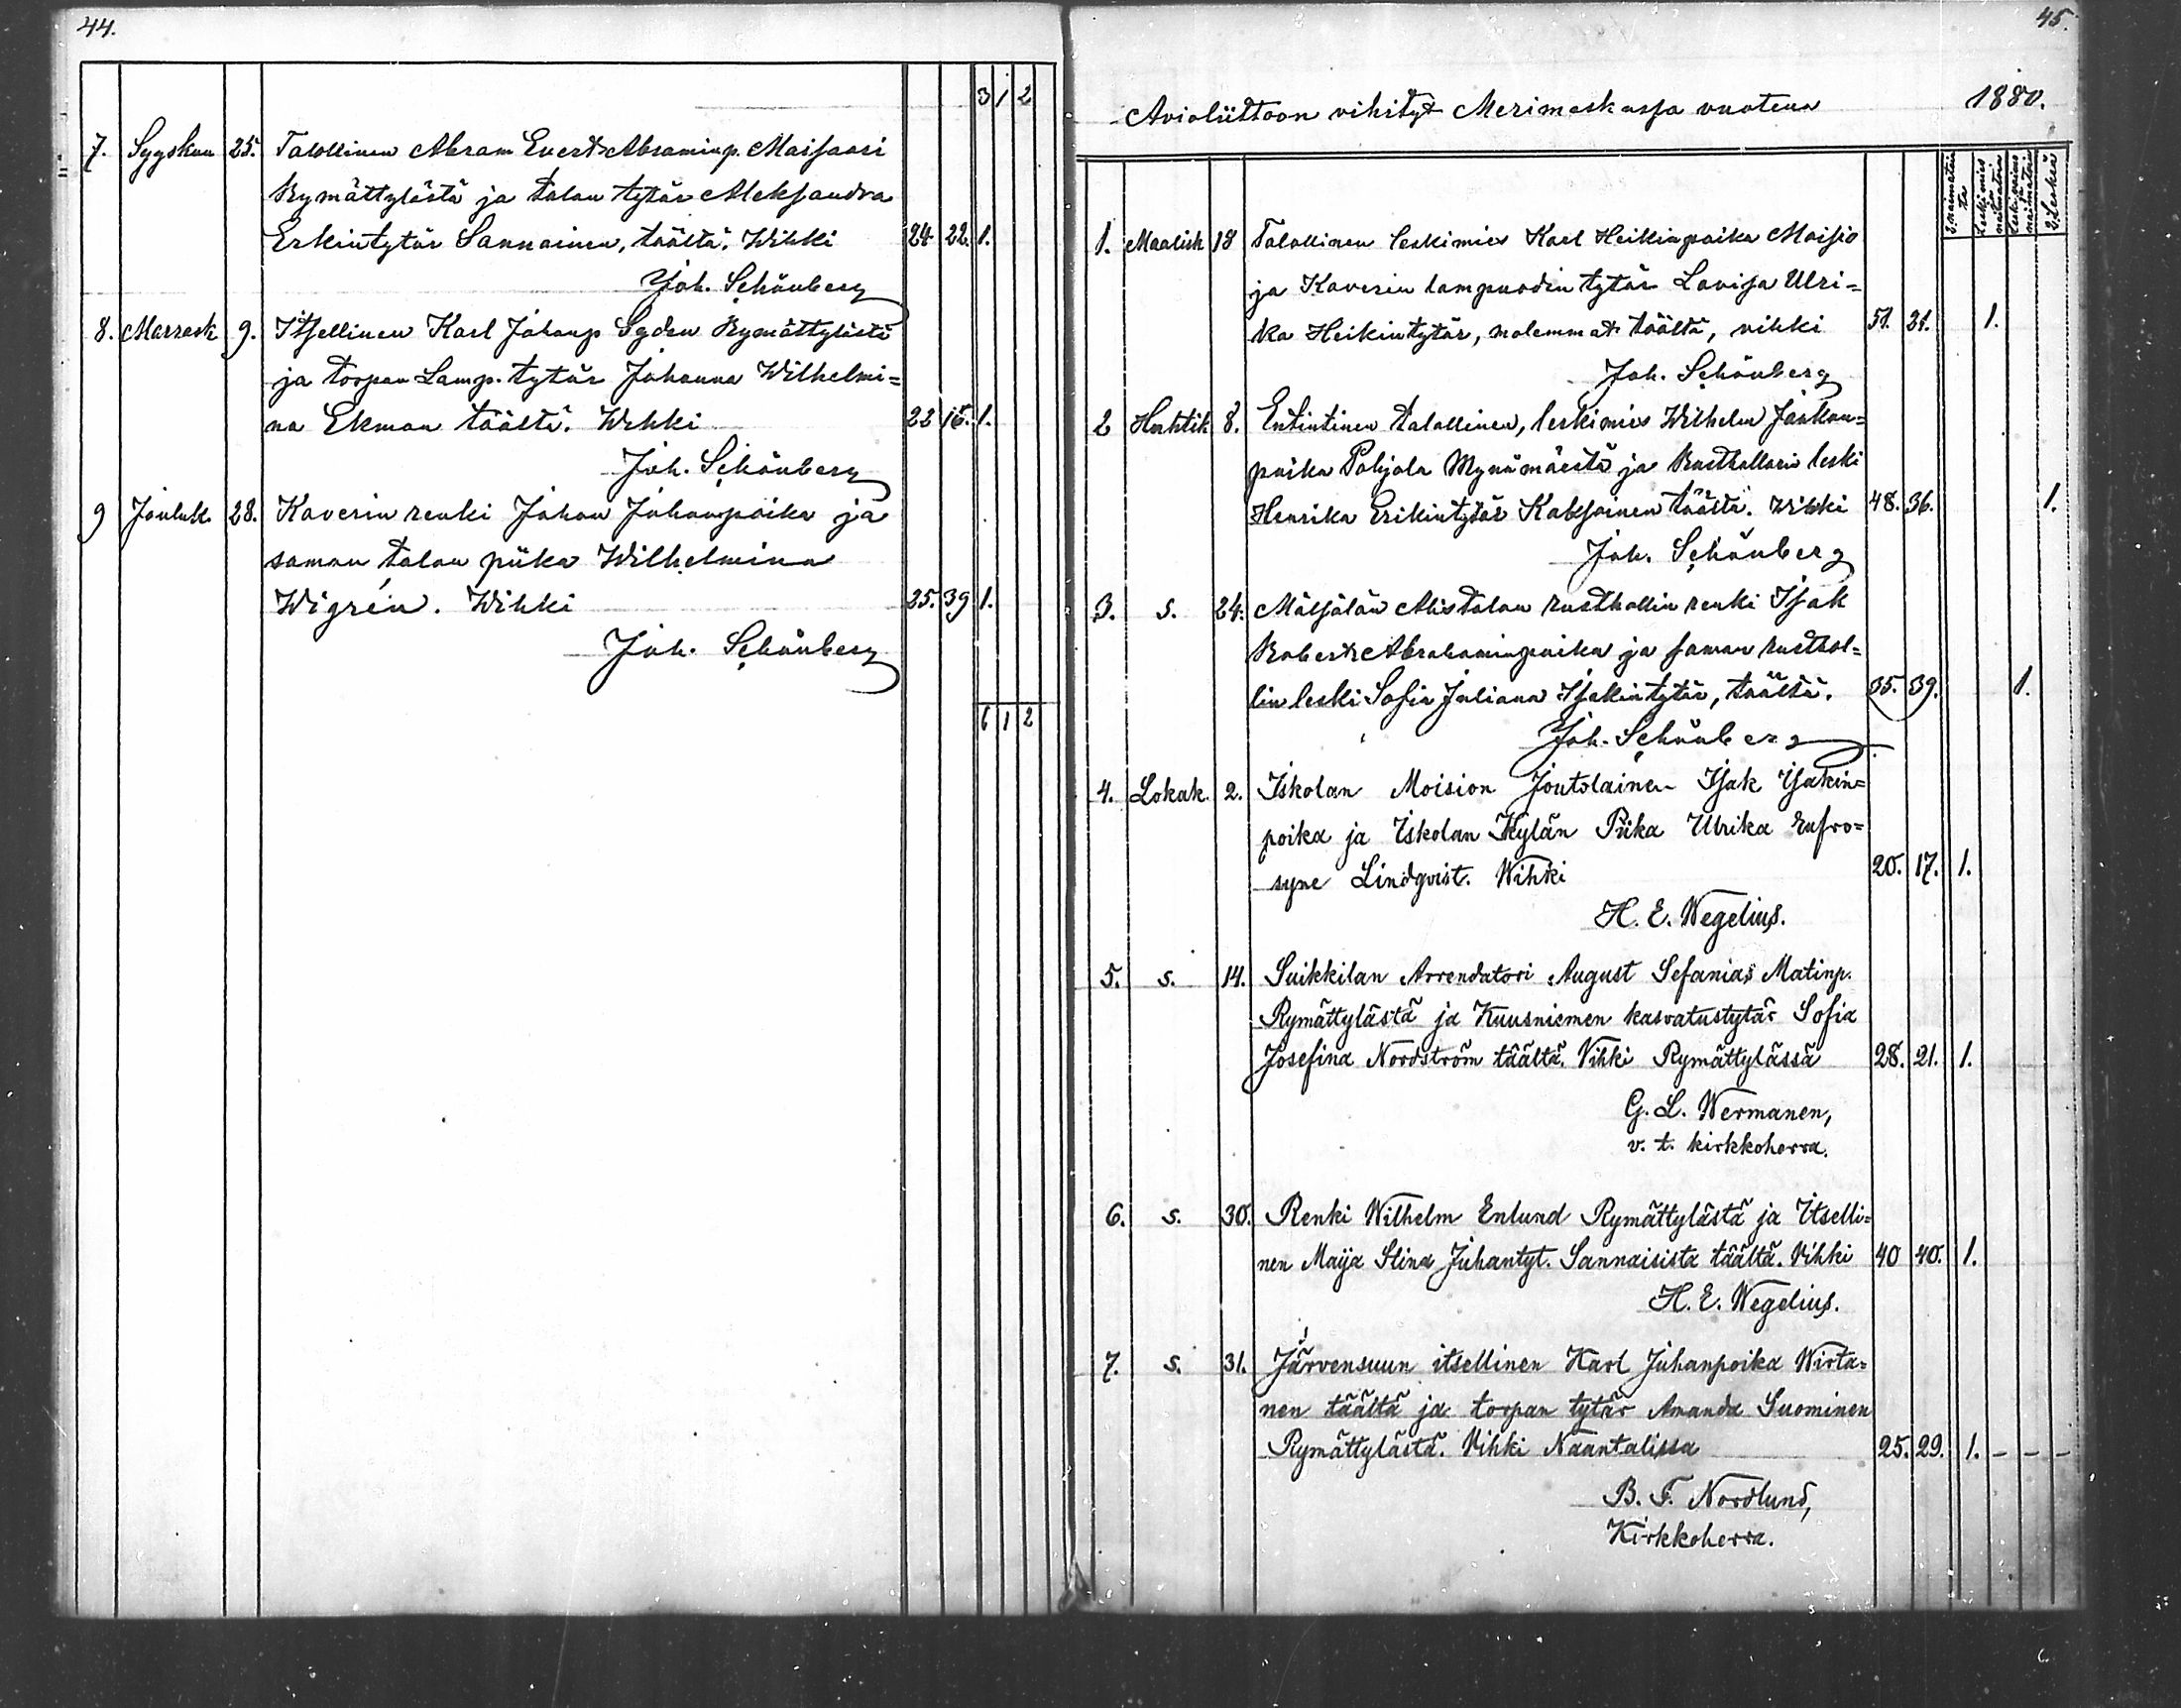 44.
3 1 2
7. Syyskuu 25. Talollinen Abram Evert Abraminp. Maisaari
Rymättylästä ja talon tytär Aleksandra
Erkintytär Sannainen, täältä. Wihki 24 22. 1.
Joh. Schönberg
8. Marrask 9. Itsellinen Karl Johanp Syden Rymättylästä
ja torpan Lamp. tytär Johanna Wilhelmi=
na Ekman täältä. Wihki 22 15. 1.
Joh. Schönberg
9 Jouluk. 28. Kaverin renki Johan Johanpoika ja
saman talon piika Wilhelmina
Wigrén. Wihki 25. 39 1.
Joh. Schönberg
6 1 2
45.
Avioliittoon vihityt Merimaskussa vuotena 1880.
2 naimatointa
Leskimies ja naimatoin
Leskivaimo ja naimatoin
2 Leskeä
1. Maalisk 18 Talollinen leskimies Karl Heikinpoika Moisio
ja Kaverin lampuodin tytär Lovisa Ulri=
ka Heikintytär, molemmat täältä, vihki 51. 31. 1.
Joh. Schönberg
2 Huhtik 8. Entintinen talollinen, leskimies Wilhelm Jaakon=
poika Pohjola Mynämäestä ja Rusthollarin leski
Henrika Erikintytär täältä. Wihki 48. 36. 1.
Joh. Schönberg
3. s. 24. Alistalon rusthollin renki Isak
Robert Abrahaminpoika ja saman rusthol=
lin leski Sofia Juliana Isakintytär, täältä. 35. 39. 1.
Joh. Schönberg
4. Lokak. 2. Iskolan Moision Joutolainen Isak Isakin=
poika ja Iskolan Kylän Piika Ulrika Eufro=
syne Lindqvist. Wihki 20. 17. 1.
H. E. Wegelius.
5. s. 14. Suikkilan Arrendatori August Sefanias Matinp.
Rymättylästä ja Kuusniemen kasvatustytär Sofia
Josefina Nordström täältä. Vihki Rymättylässä 28. 21. 1.
G. L. Wermanen,
v. t. kirkkoherra.
6. s. 30. Renki Wilhelm Enlund Rymättylästä ja Itselli=
nen Maija Stina Juhantyt. Sannaisista täältä. Vihki 40 40. 1.
H. E. Wegelius.
7. s. 31. Järvensuun itsellinen Karl Juhanpoika Wirta=
nen täältä ja torpan tytär Amanda Suominen
Rymättylästä. Vihki Naantalissa 25. 29. 1. - - -
B. F. Nordlund,
Kirkkoherra.